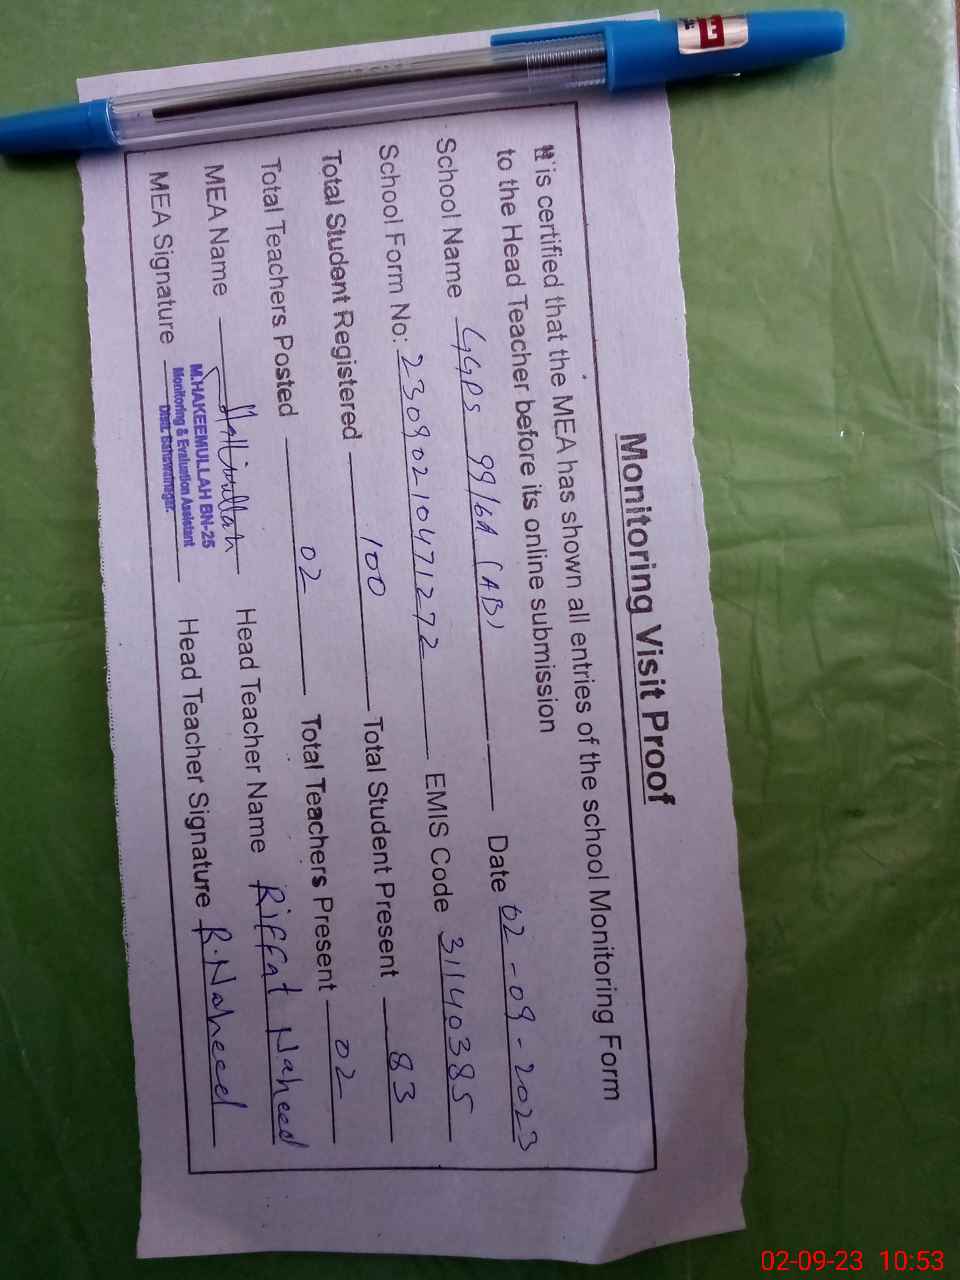 Monitoring Visit Proof
It is certified that the MEA has shown all entries of the school Monitoring Form
to the Head Teacher before its online submission
School Name GGPS 99/6A (AB) Date 02-09-2023
School Form No: 23090210471272 EMIS Code 31140385
Total Student Registered 100 Total Student Present 83
Total Teachers Posted 02 Total Teachers Present 02
MEA Name Head Teacher Name Riffat Naheed
MEA Signature Head Teacher Signature R.Naheed
M.HAKEEMULLAH BN-25
Monitoring & Evaluation Assistant
Distt. Bahawalnagar.
02-09-23 10:53